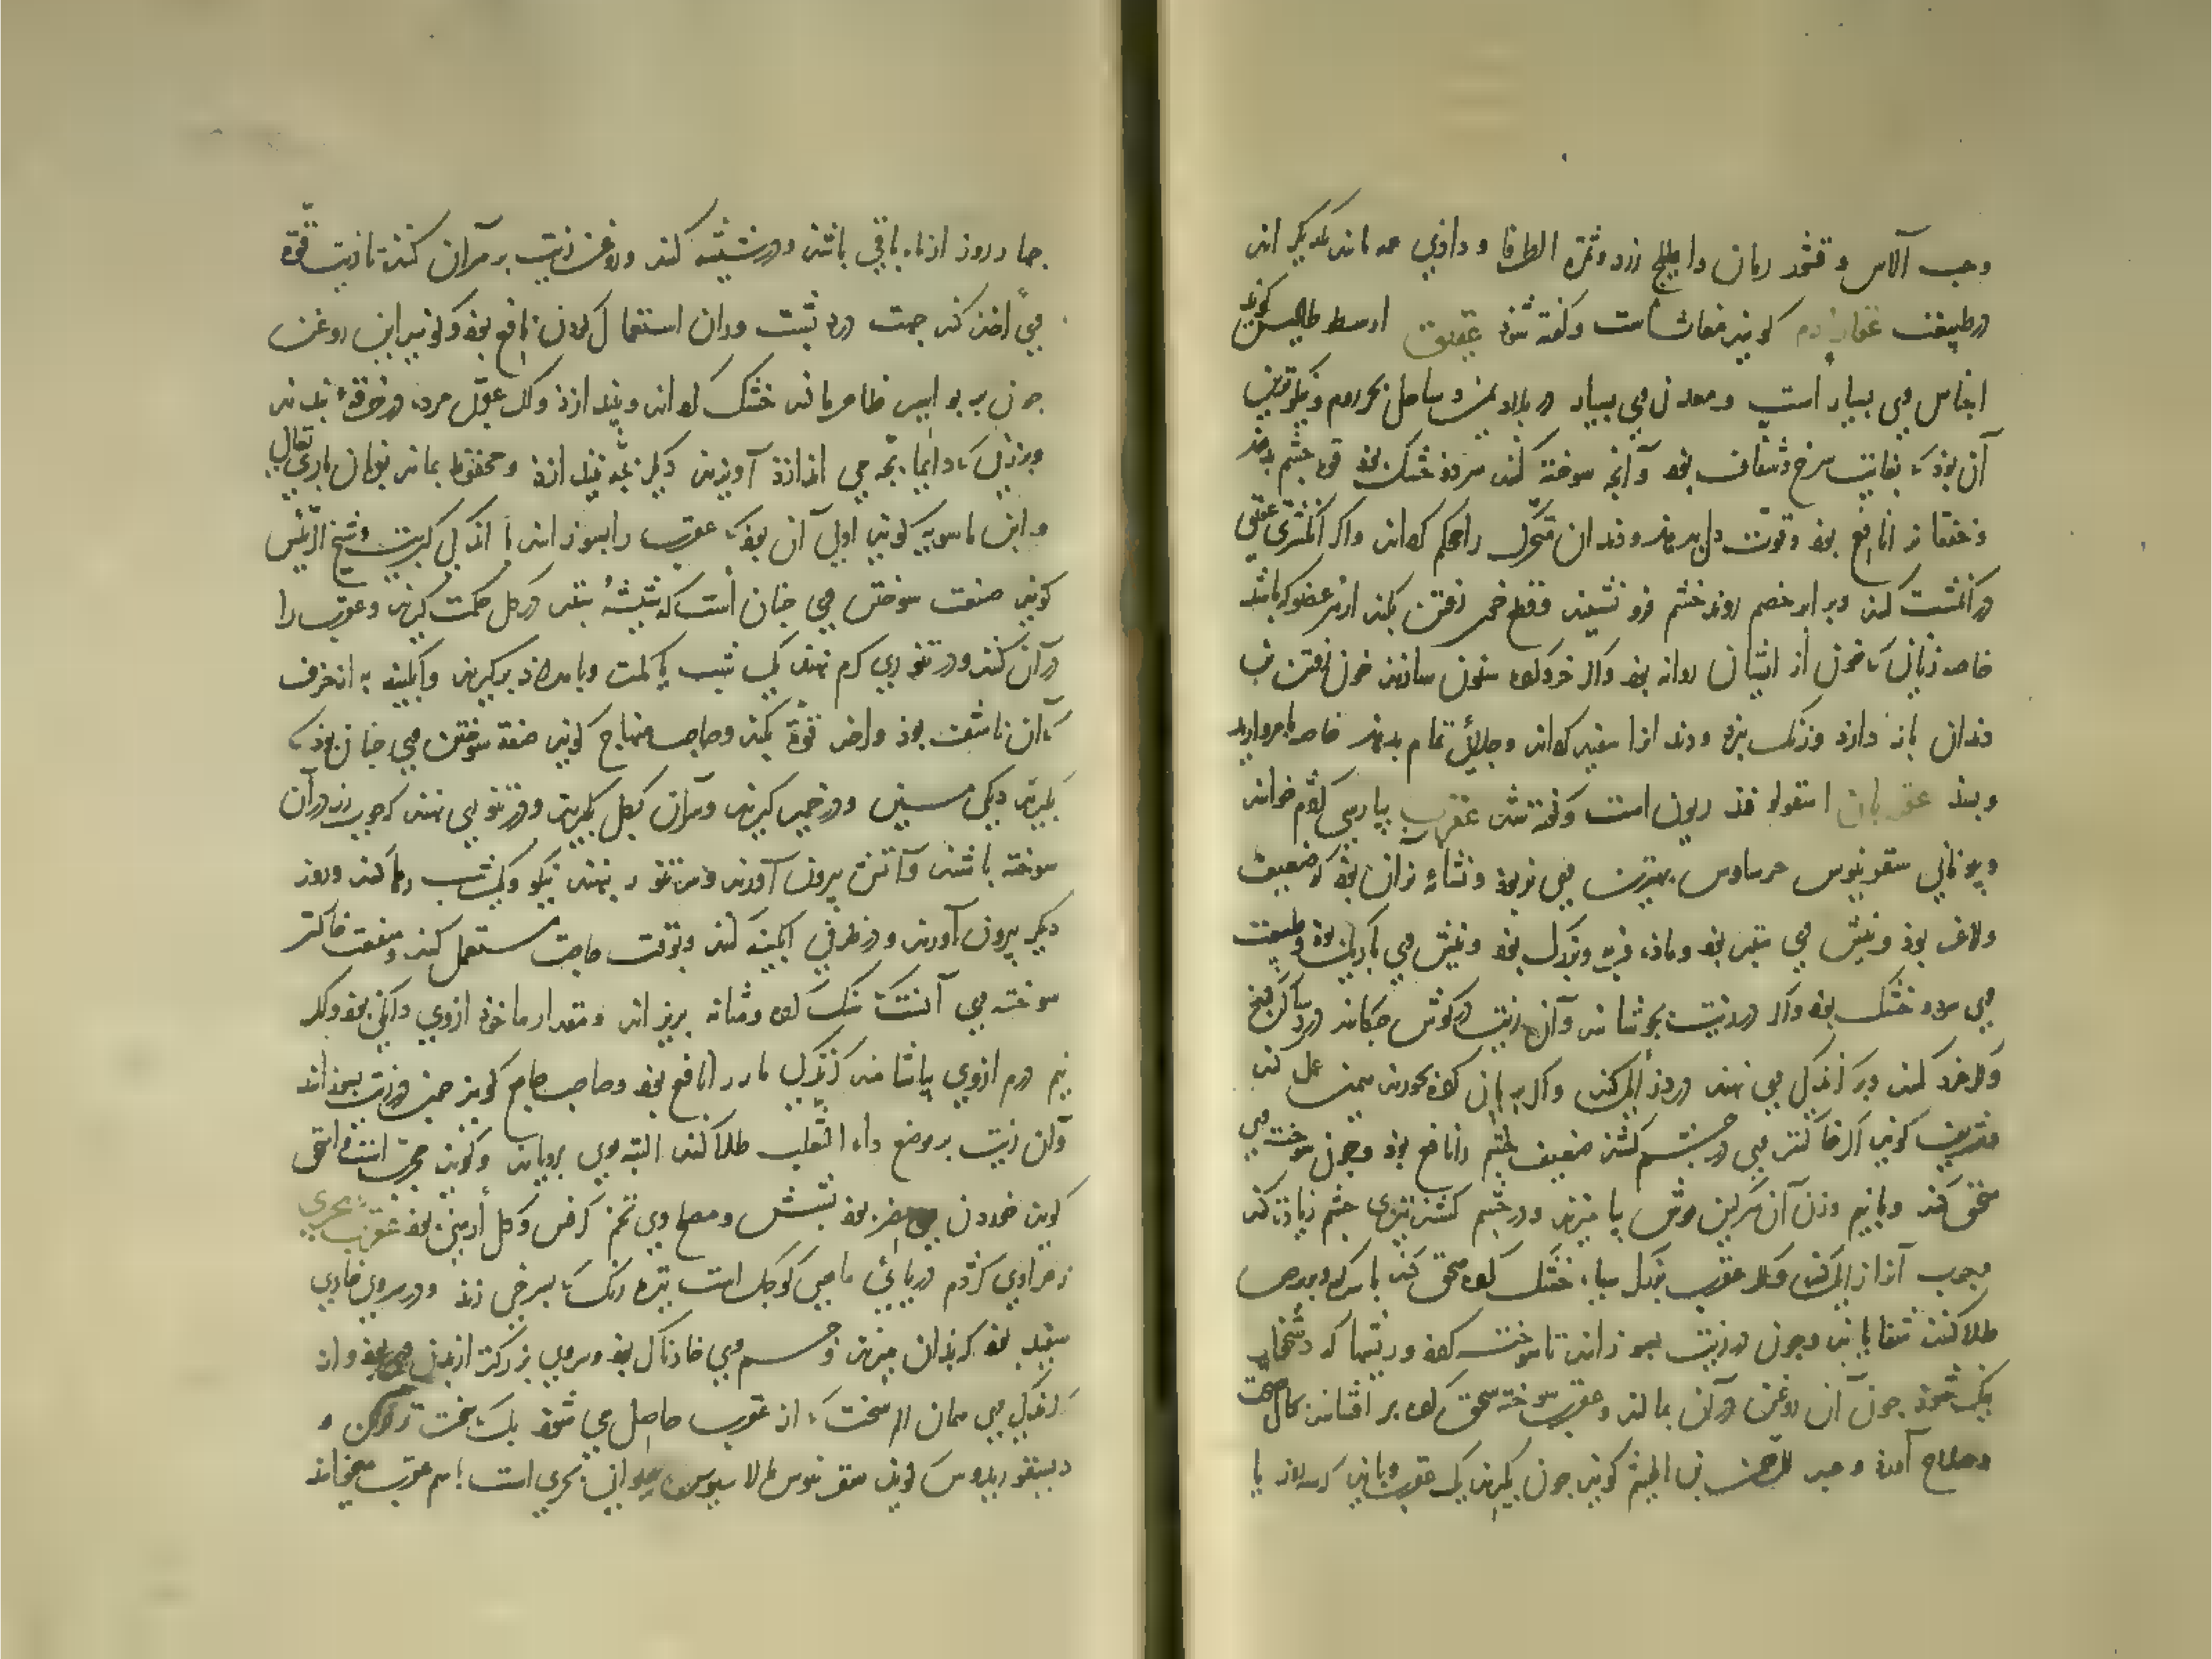 وحب آلاس و قشور رمان و اهلیلج زرد و ثمرة الطرفا و داذی همه مانند یکدیگر اند
در طبیعت عقار ادم گویند مغاث است و گفته شود عقیق ارسطاطالیس گوید
اجناس وی بسیار است و معدن وی بسیار در بلاد یمن و ساحل بحر روم و نیکوترین
آن بود که بغایت سرخ و شفاف بود و آنچه سوخته کنند سرد و خشک بود قوة چشم بدهد
و خفقان را نافع بود و قوت دل بدهد و دندان متحرک را محکم گرداند و اگر انگشتری عقیق
در انگشت کنند و برابر خصم روند خشم فرو نشیند و قطع خون رفتن بکند از هر عضو که باشد
خاصه زنانی که خون از ایشان روانه بود و اگر خرد کرده سنون سازند خون رفتن بن
دندان باز دارد و زنگ ببرد و دندانرا سفید گرداند و جلائی تمام بدهد خاصه با مروارید
و بسد عقربان اسقولوقندریون است و گفته شد عقرب بپارسی کژدم خوانند
و بیونانی سقربیوس بهترین وی نر بود و نشانه نر آن بود که ضعیف
و لاغر بود و نیش وی ستبر بود و ماده فربه و بزرگ بود و نیش وی باریک بود و طبیعت
وی سرد و خشک بود و اگر در زیت بجوشانند و آن زیت در گوش چکانند درد ساکن کند
و اگر خرد کنند و بر گزندگی وی نهند درد زایل کند و اگر بریان کرده بخورند همین عمل کند
شریف گوید اگر خاکستر وی در چشم کشند ضعیف چشم را نافع بود و چون سوخته وی
سحق کنند و با نیم وزن آن سرگین موش بیامیزند و در چشم کشند تیزی چشم زیادت کند
و جرب آنرا زایل کند و اگر عقرب بزرگ سیاه خشک کرده سحق کنند با سرکه و بر برص
طلا کنند شفا یابد و چون در زیت بسوزانند تا سوخته گردد و ریشها که دشخوار
نیک شود چون آن روغن در آن بمالند و عقرب سوخته سحق کرده بر افشانند بحال صحت
و صلاح آورد و عبد الرحمن بن الهیثم گوید چون بگیرند یک عقرب و باید که سه روز یا
چهار روز از ماه باقی باشد و در شیشه کنند و روغن زیت بر سر آن کنند تا زیت قوة
وی اخذ کند جهت درد پشت و ران استعمال کردن نافع بود و گویند این روغن
چون بر بواسیر ظاهر مالند خشک گرداند و بیندازد و اگر عقرب مرده در خرقه بندند
و بر زنی که دایما بچه می اندازد آویزند دیگر بچه نیندازد و محفوظ بماند بفرمان باری تعالی
و ابن ماسویه گوید اولی آن بود که عقرب را بسوزانند با اندکی کبریت و شیخ الرئیس
گوید صنعت سوختن وی چنان است که شیشهٔ ستبر در گل حکمت گیرند و عقرب را
در آن کنند و در تنوری گرم نهند یک شب یا کمتر و بامداد برگیرند و آبگینه به از خزف
که آن ناشف بود و اخذ قوة بکند و صاحب منهاج گوید صفة سوختن وی چنان بود که
بگیرند دیگی مسین و در خمیر گیرند و سر آن بگل بگیرند و در تنوری نهند که چوب رز در آن
سوخته باشند و آتش بیرون آورند و سر تنور بنهند نیکو و یک شب رها کنند و روز
دیگر بیرون آورند و در ظرفی آبگینه کنند و بوقت حاجت مستعمل کنند و منفعت خاکستر
سوخته وی آنست که سنگ گرده و مثانه بریزاند و مقدار ماخوذ ازوی دانگی بود و اگر
نیم درم ازوی بیاشامند گزندگی مار را نافع بود و صاحب جامع گوید چون در زیت بسوزانند
و آن زیت بر موضع داء الثعلب طلا کنند البته موی برویاند و گویند مجرب است و اسحق
گوید خوردن وی مضر بود بشش و مصلح وی تخم کرفس و گل ارمنی بود عقرب بحری
زهراوی کژدم دریائی ماهی کوچک است تیره رنگ که بسرخی زند و در سروی خاری
سفید بود که بدان میزند و جسم وی خارناک بود و سروی بزرگتر از بدن وی بود و از
گزندگی وی همان الم سخت که از عقرب حاصل می شود بلکه سخت تر
دیسقوریدوس گوید سقربیوس حیوانی بحری است باسم عقرب میخوانند